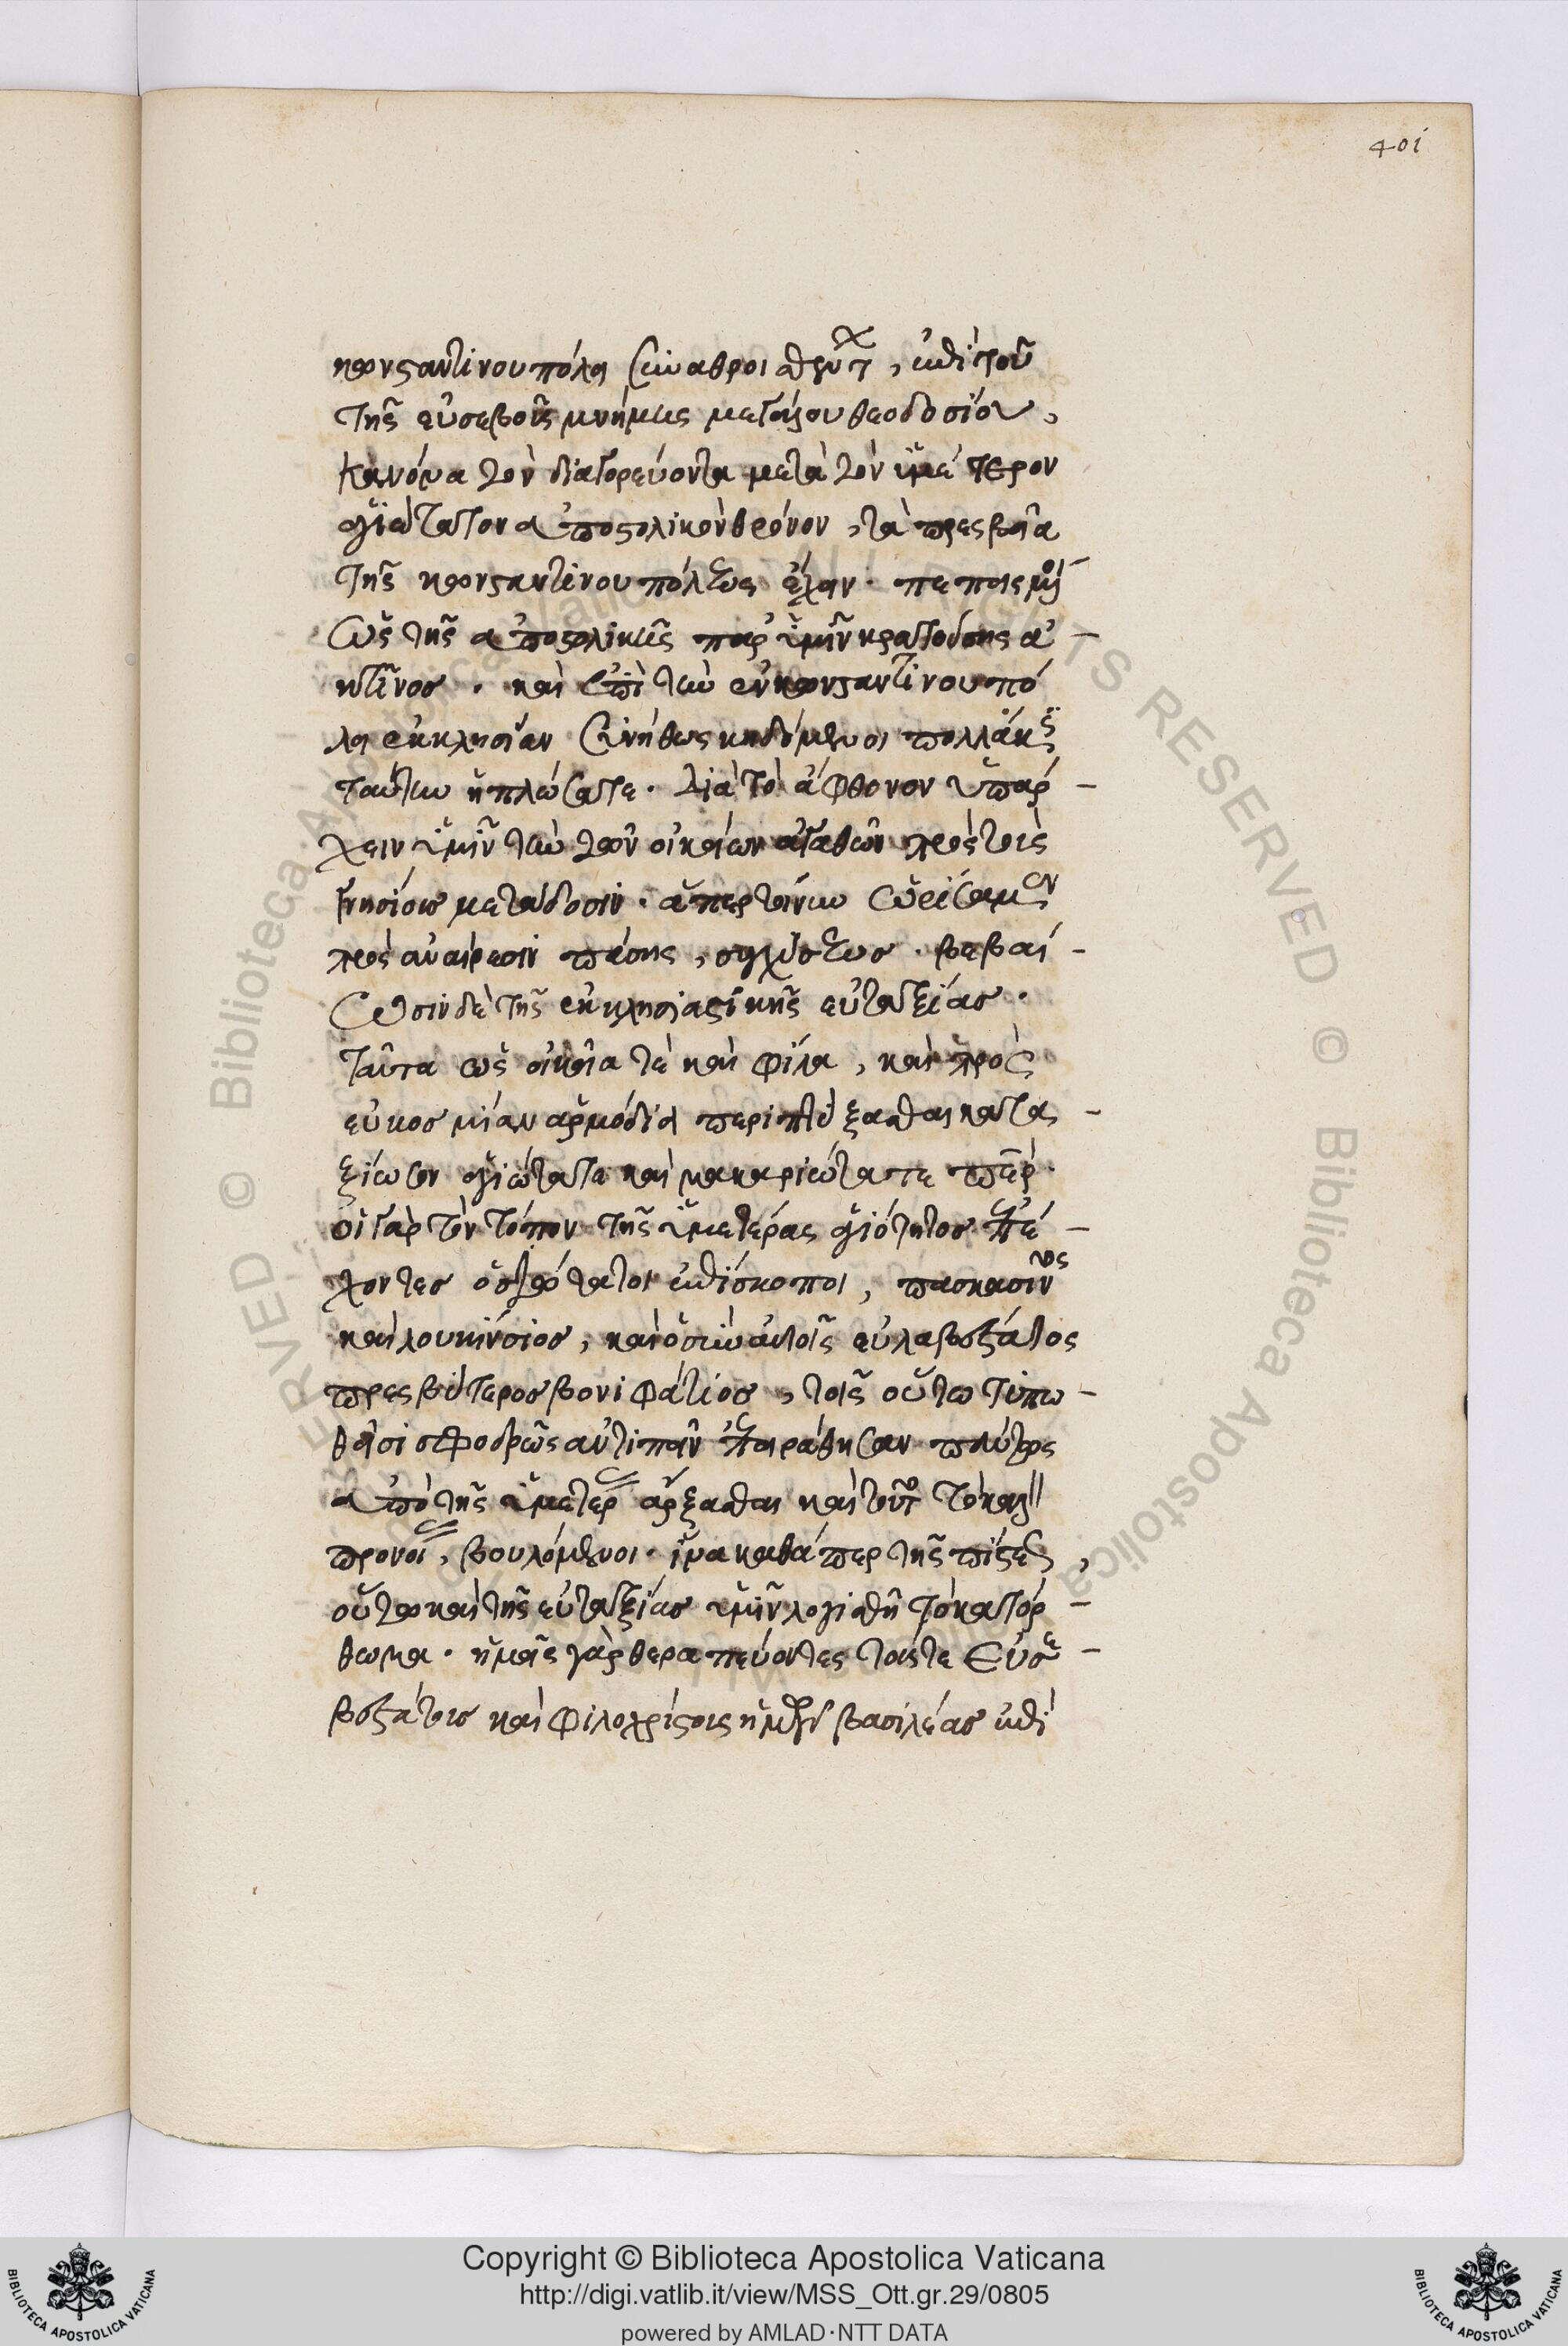 401
κωνσταντινουπόλει συναθροισθέντων, ἐπὶ τοῦ
τῆς εὐσεβοῦς μνήμης μεγάλου θεοδοσίου,
κανόνα τὸν διαγορεύοντα μετὰ τὸν ὑμέτερον
ἁγιώτατον ἀποστολικὸν θρόνον, τὰ πρεσβεῖα
τῆς κωνσταντινουπόλεως ἔχειν. πεποισμέ
ὡς τῆς ἀποστολικῆς παρ' ὑμῖν κρατούσης ἀ-
κτῖνος. καὶ ἐπὶ τὴν ἐν κωνσταντινουπό
λει ἐκκλησίαν συνήθως κηδόμενοι πολλάκις
ταύτην ἡπλώσατε. διὰ τὸ ἄφθονον ὑπάρ-
χειν ὑμῖν τὴν τῶν οἰκείων ἀγαθῶν πρὸς τοὺς
γνησίους μετάδοσιν. ἅπερ τοίνυν ὡρίσαμεν
πρὸς ἀναίρεσιν πάσης, συγχύσεως. βεβαί-
ωσιν δὲ τῆς ἐκκλησιαστικῆς εὐταξίας.
ταῦτα ὡς οἰκεῖα τὲ καὶ φίλα, καὶ πρὸς
εὐκοσμίαν ἁρμόδια περιπτύξασθαι κατα-
ξίωσον ἁγιώτατε καὶ μακαριώτατε πάτερ.
οἱ γὰρ τὸν τόπον τῆς ὑμετέρας ἁγιότητος ἐπέ-
χοντες ὁσιώτατοι ἐπίσκοποι, πασκασῖνος
καὶ λουκίνσιος, καὶ ὁ σὺν αὐτοῖς εὐλαβέστατος
πρεσβύτερος βονιφάτιος, τοῖς οὕτω τυπω-
θεῖσι σφοδρῶς ἀντιπεῖν ἐπειράθησαν πάντως
ἀπὸ τῆς ὑμετέρας ἄρξασθαι καὶ τοῦτο τὸ καλὸν
προνοίας, βουλόμενοι. ἵνα καθάπερ τῆς πίστεως,
οὕτω καὶ τῆς εὐταξίας ὑμῖν λογισθῆ τὸ κατόρ-
θωμα. ἡμεῖς γὰρ θεραπεύοντες τούς τε Εὐσε-
βεστάτους καὶ φιλοχρίστους ἡμῶν βασιλέας ἐπὶ
Copyright © Biblioteca Apostolica Vaticana
http://digi.vatlib.it/view/MSS_Ott.gr.29/0805
powered by AMLAD·NTT DATA